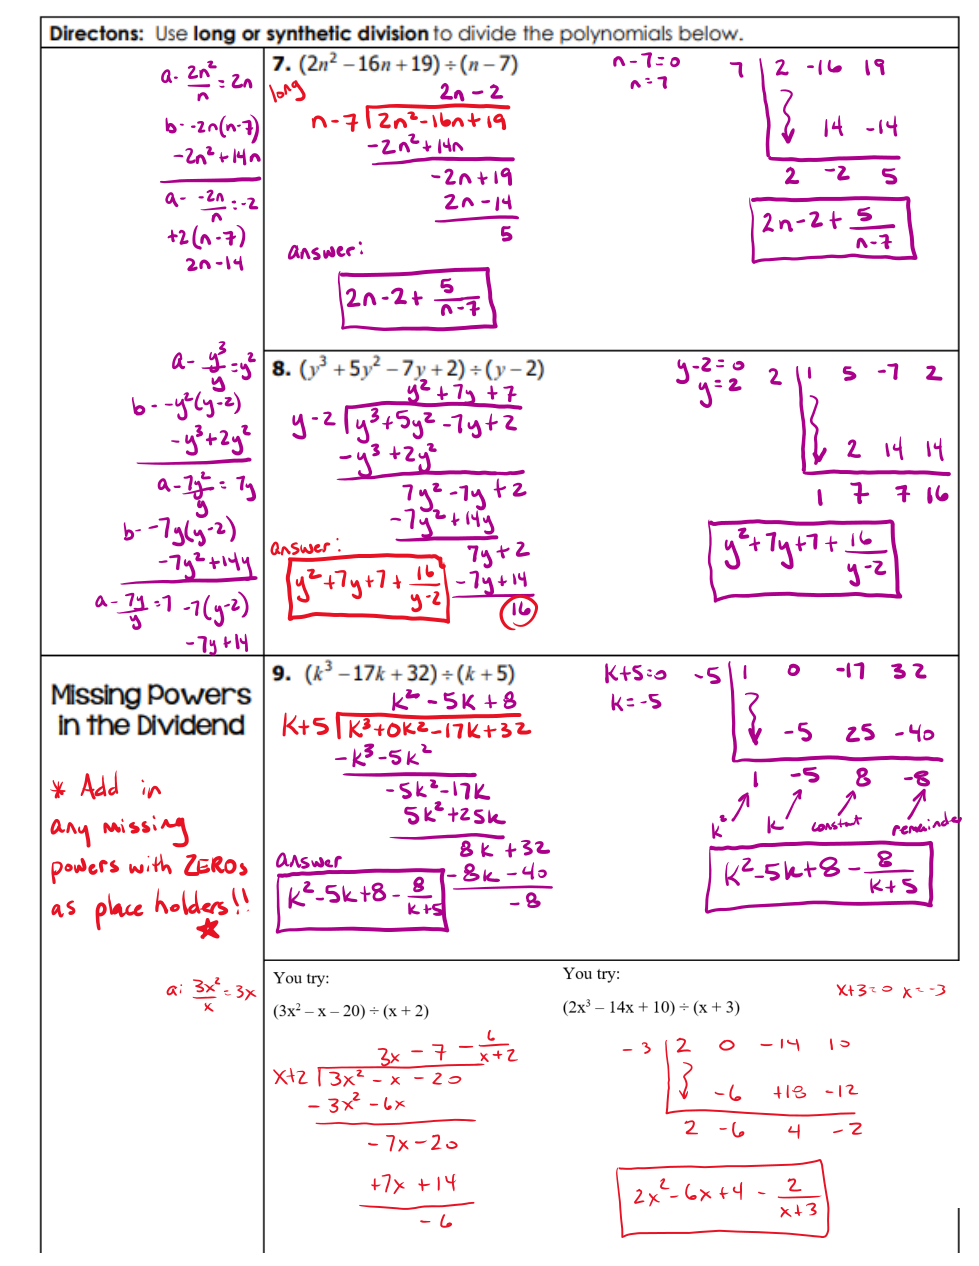 Directons: Use long or synthetic division to divide the polynomials below.
a- 2n²/n = 2n
b- -2n(n-7)
-2n² + 14n
a- -2n/n = -2
+2(n-7)
2n-14
7. (2n² – 16n + 19) ÷ (n – 7)
long
2n - 2
n-7 2n²-16n+19
-2n²+14n
-2n+19
2n-14
5
answer:
2n-2+ 5/(n-7)
n-7=0
n=7
7 2 -16 19
14 -14
2 -2 5
2n-2+ 5/(n-7)
a- y³/y = y²
b- -y²(y-2)
-y³+2y²
a- 7y²/y = 7y
b- -7y(y-2)
-7y²+14y
a- 7y/y =7 -7(y-2)
-7y+14
8. (y³ + 5y² – 7y + 2) ÷ (y – 2)
y² + 7y + 7
y-2 y³+5y²-7y+2
-y³+2y²
7y²-7y+2
-7y²+14y
7y+2
-7y+14
16
answer:
y²+7y+7+ 16/(y-2)
y-2=0
y=2
2 1 5 -7 2
2 14 14
1 7 7 16
y²+7y+7+ 16/(y-2)
Missing Powers
in the Dividend
* Add in
any missing
powers with ZEROs
as place holders!!
9. (k³ – 17k + 32) ÷ (k + 5)
k² - 5k + 8
k+5 k³+0k²-17k+32
-k³-5k²
-5k²-17k
5k²+25k
8k +32
-8k -40
-8
answer
k²-5k+8 - 8/(k+5)
k+5=0
k=-5
-5 1 0 -17 32
-5 25 -40
1 -5 8 -8
k² k constant remainder
k²-5k+8 - 8/(k+5)
a: 3x²/x = 3x
You try:
(3x² – x – 20) ÷ (x + 2)
3x - 7 - 6/(x+2)
x+2 3x² - x - 20
- 3x² - 6x
-7x-20
+7x +14
-6
You try:
(2x³ – 14x + 10) ÷ (x + 3)
x+3=0 x=-3
-3 2 0 -14 10
-6 +18 -12
2 -6 4 -2
2x²-6x+4 - 2/(x+3)